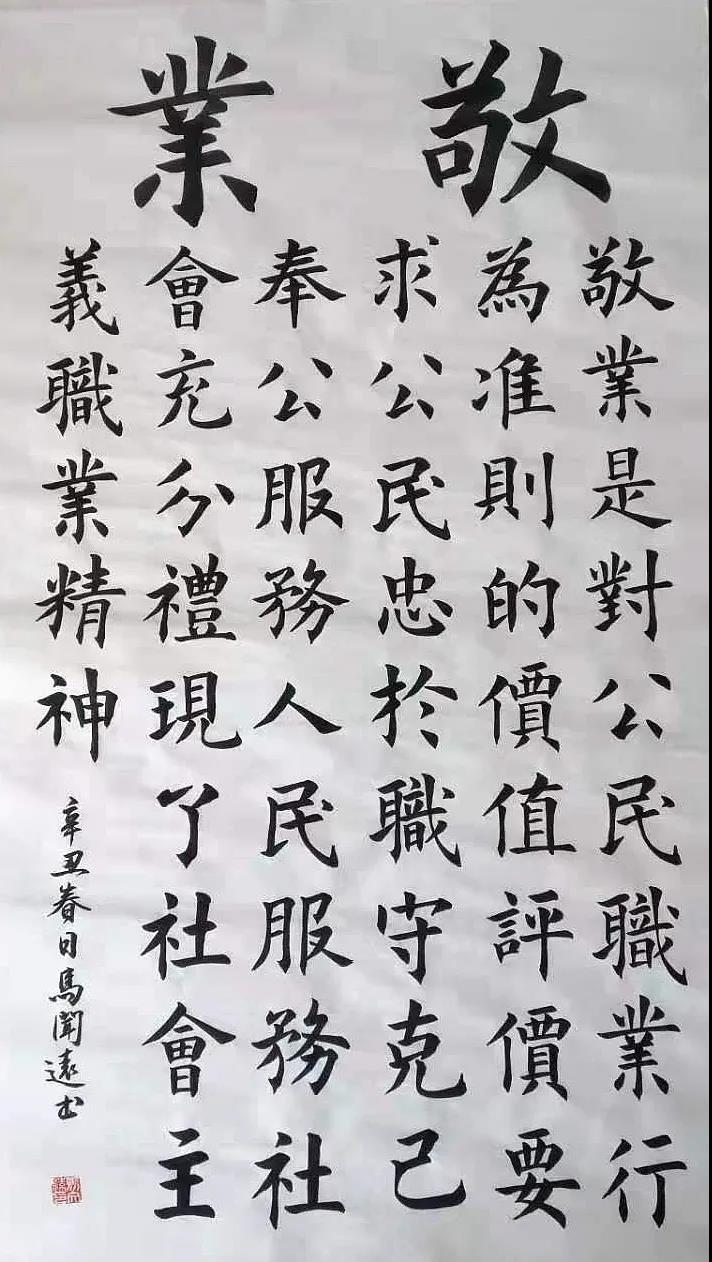 敬業
敬業是對公民職業行
為准則的價值評價要
求公民忠於職守克己
奉公服務人民服務社
會充分禮現了社會主
義職業精神
辛丑春日馬開遠书